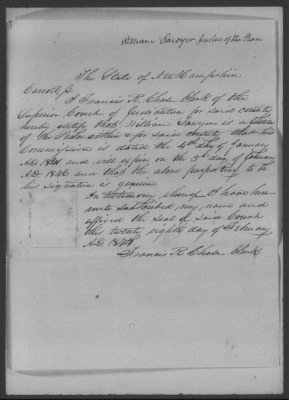 William Sawyer Justice of the Peace
The State of New Hampshire
Carroll ss
I Francis R. Chase Clerk of the
Superior Court of Judicature for said County
hereby certify that William Sawyer is a Justice
of the Peace within & for said County that his
Commission is dated the day of January
A.D. and will expire on the 3d day of January
A.D. 1846 and that the above purporting to be
his signature is genuine
In testimony whereof I have here
unto subscribed my name and
affixed the seal of said Court
this twenty eighth day of February
A.D.
Francis R. Chase Clerk